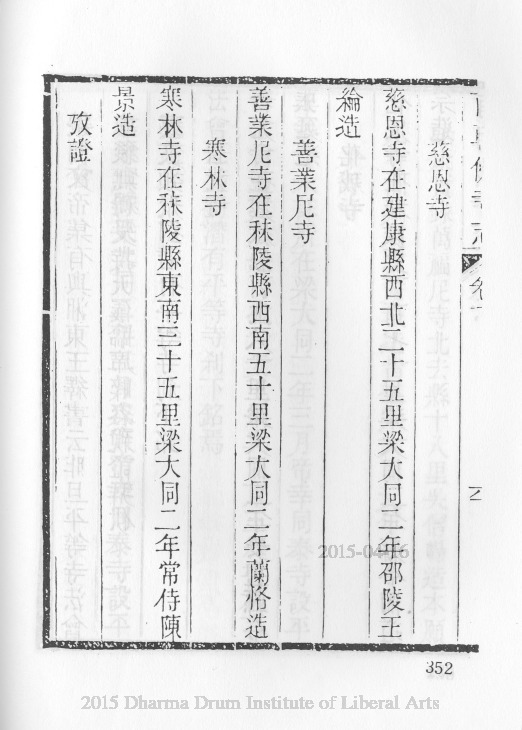 慈恩寺
慈恩寺在建康縣西北二十五里梁大同二年邵陵王
綸造
善業尼寺
善業尼寺在秣陵縣西南五十里梁大同二年蘭恪造
寒林寺
寒林寺在秣陵縣東南三十五里梁大同二年常侍陳
景造
攷證
352
2015-04-16
2015 Dharma Drum Institute of Liberal Arts